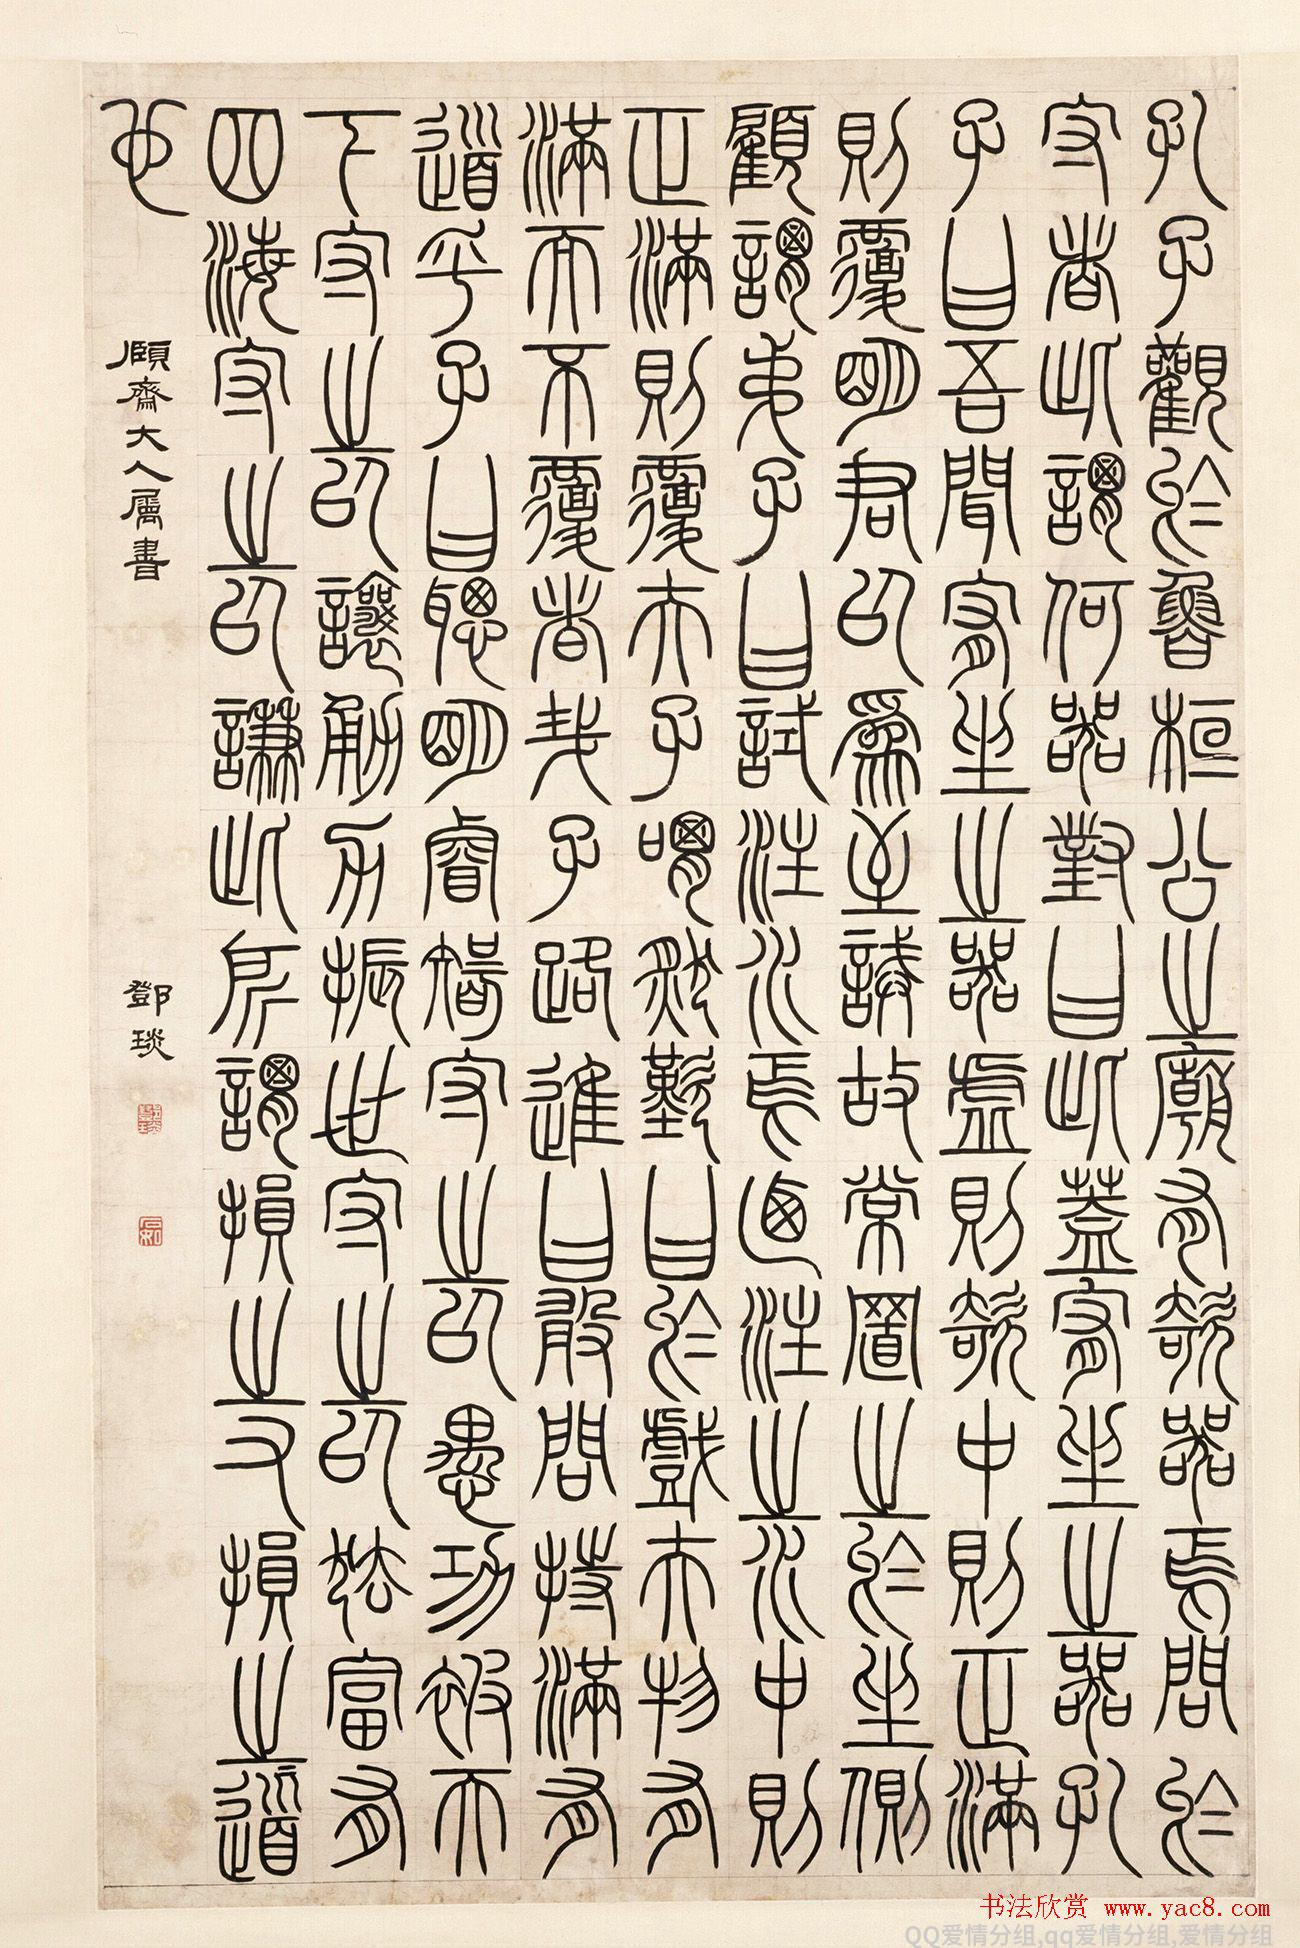 孔子觀於魯桓公之廟有欹器焉問於
守者此謂何器對曰此蓋宥坐之器孔
子曰吾聞宥坐之器虛則欹中則正滿
則覆明君以為至誡故常置之於坐側
顧謂弟子曰試注水焉迺注之水中則
正滿則覆夫子喟然歎曰於戲夫物有
滿而不覆者哉子路進曰敢問持滿有
道乎子曰聰明睿智守之以愚功被天
下守之以讓勇力振世守之以怯富有
四海守之以謙此所謂損之又損之道
也
頤齋大人屬書
鄧琰
石如
书法欣赏 www.yac8.com
QQ爱情分组,qq爱情分组,爱情分组